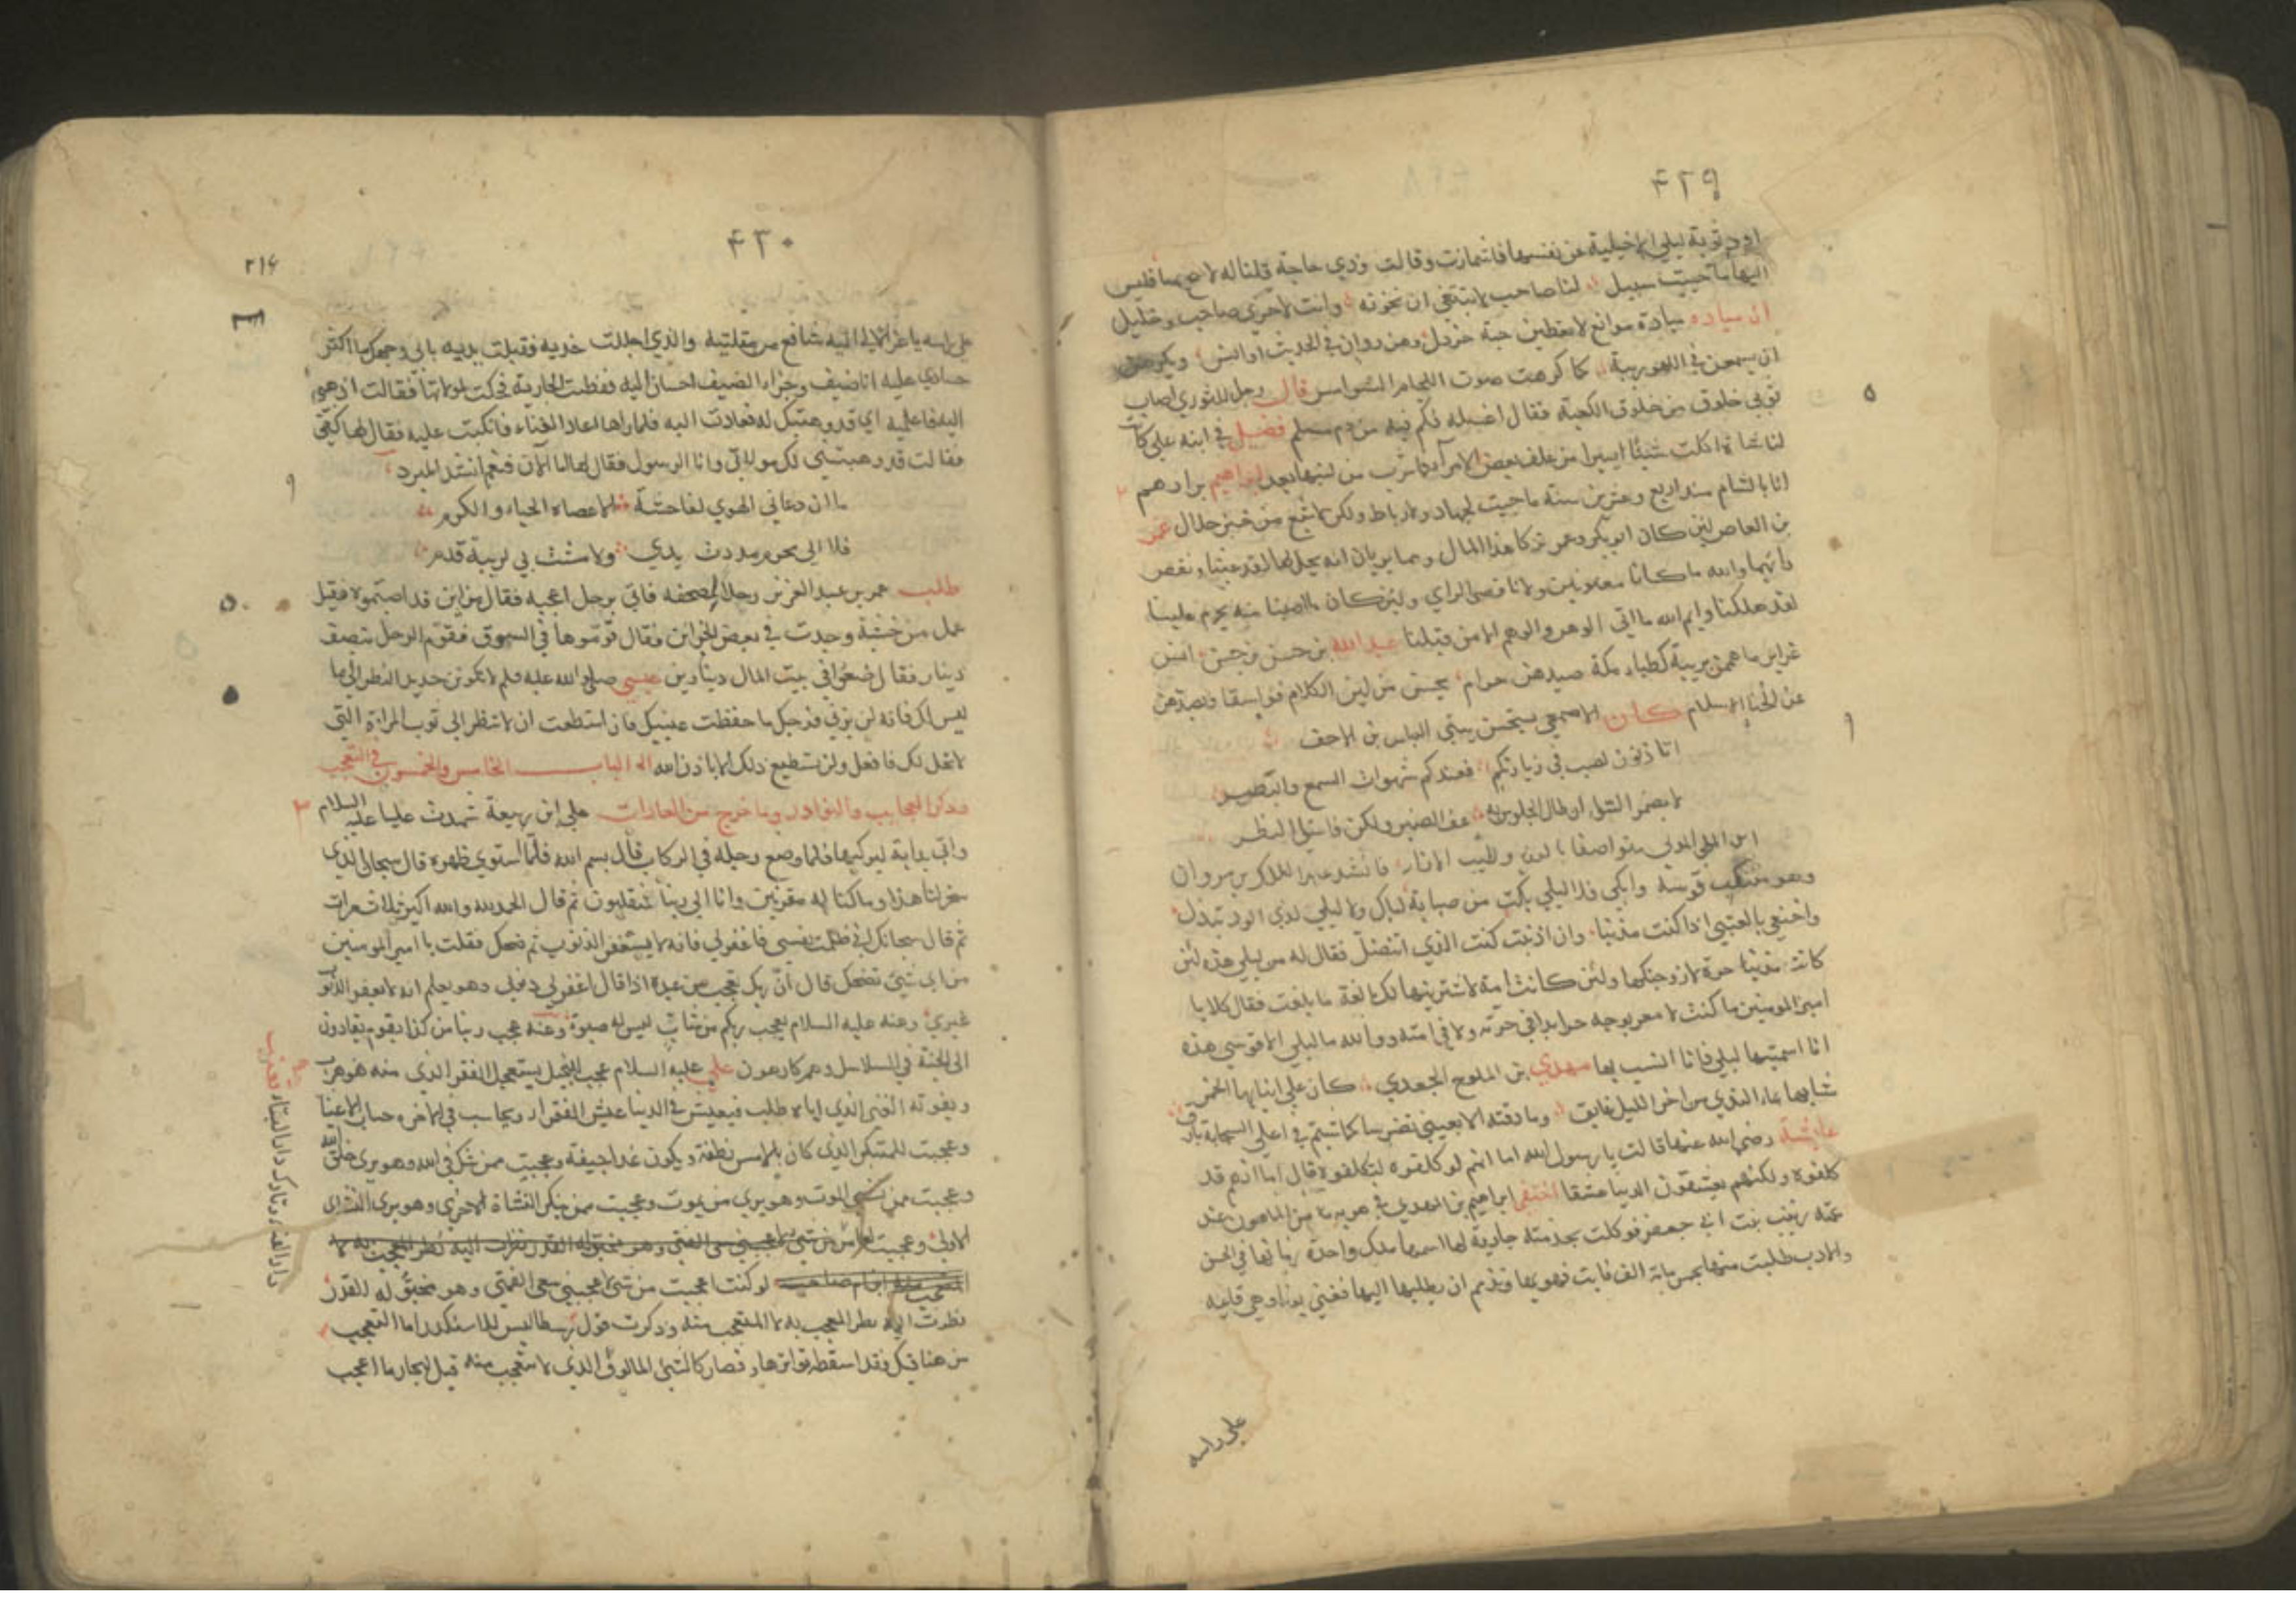 ٤٢٩
اود توبة ليلي الاخيلية عن نفسها فاشمازت وقالت وذي حاجة قلنا له لا تبح بها فليس
اليها ما حييت سبيل لنا صاحب لا نبتغي ان نخونه وانت لاخرى صاحب وخليل
ابن مياده موانع لا يعطين حبة خردل وهن دوان في الحديث اوانس ويكرهن
ان يسمعن في اللهو ريبة كما كرهت صوت اللجام الشوامس قال رجل للثوري اصاب
ثوبي خلوق من خلوق الكعبة فقال اغسله فكم فيه من دم مسلم فضيل في ابنه علي كانت
لنا شاة اكلت شيئا يسيرا من علف بعض الامرآ فما شرب من لبنها بعد ابراهيم بن ادهم
انا بالشام منذ اربع وعشرين سنة ما جيت لجهاد ولا رباط ولكن لاشبع من خبز حلال عمرو
بن العاص لئن كان ابو بكر وعمر تركا هذا المال وهما يريان انه يحل لهما لقد غبنا ونقص
رأيهما والله ما كانا مغبونين ولا ناقصي الراي ولئن كان ما اصبنا منه يحرم علينا
لقد هلكنا وايم الله ما اتى الوهن والوهم الا من قبلنا عبد الله بن حسن بن حسن انس
غراير ما هممن بريبة كظباء مكة صيدهن حرام يحسبن من لين الكلام فواسقا ويصدهن
عن الخنا الاسلام كان الاصمعي يستحسن بيتي العباس بن الاحنف
اتاذنون لصب في زيارتكم فعندكم شهوات السمع والبصر
لا يضمر السوء ان طال الجلوس به عف الضمير ولكن فاسق النظر
فانشد عبد الملك بن مروان
وهو متنكب قوسه وابكي فلا ليلي بكت من صبابة لباك ولا ليلي لذي الود تبذل
واخنع بالعتبي اذا كنت مذنبا وان اذنبت كنت الذي اتنصل فقال له من ليلي هذه لئن
كانت حرة لازوجنكها ولئن كانت امة لاشترينها لك بالغة ما بلغت فقال كلا يا
امير المومنين ما كنت لا معر بوجه حر ابدا في حرته ولا في امته ووالله ما ليلي الا قوسي هذه
انا اسميتها ليلي فانا انسب بها مهدي بن الملوح الجعدي كان علي انيابها الخمر
شابها بماء الندي من اخر الليل غابق وما ذقته الا بعيني تفرسا كما شيم في اعلي السحابة بارق
عايشة رضي الله عنها قالت يا رسول الله
كلفوه ولكنهم يعشقون الدنيا عشقا اختفي ابراهيم بن المهدي في هربه من المامون عند
عمته زينب بنت ابي جعفر فوكلت بخدمته جارية لها اسمها ملك واحدة زمانها في الحسن
والادب طلبت منها بخمس مائة الف فابت فهويها وتذمم ان يطلبها اليها فغني يوما وهي قايمة
علي راسه
٤٣٠
٢١٤
علي راسه يا غزالا لي اليه شافع من مقلتيه والذي اجللت خديه فقبلت يديه بابي وجهك ما اكثر
حسادي عليه انا ضيف وجزاء الضيف احسان اليه ففطنت الجارية فحكت لمولاتها فقالت اذهبي
اليه فاعلميه اني قد وهبتك له فعادت اليه فلما راها اعاد الغناء فانكبت عليه فقال لها كفي
فقالت قد وهبتني لك مولاتي وانا الرسول فقال لها اما الآن فنعم انشد المبرد
ما ان دعاني الهوي لفاحشة الا عصاه الحياء والكرم
فلا الي محرم مددت يدي ولا مشت بي لريبة قدم
طلب عمر بن عبد العزيز رجلا لمصحفه فاتي برجل اعجبه فقال من اين قد اصبتموه فقيل
عمل من خشبة وجدت في بعض الخزائن فقال قوّموها في السوق فقوّم الرجل بنصف
دينار فقال ضعوا في بيت المال دينارين عيسي صلى الله عليه وسلم لا يكونن حديد النظر الى ما
ليس لك فانه لن يزني فرجك ما حفظت عينيك فان استطعت ان لا تنظر الى ثوب المراة التي
لا تحل لك فافعل ولن تستطيع ذلك الا باذن الله الباب الخامس والخمسون في التعجب
وذكر العجايب والنوادر وما خرج من العادات علي ابن ربيعة شهدت عليا عليه السلام
واتي بدابة ليركبها فلما وضع رجله في الركاب قال بسم الله فلما استوي على ظهره قال سبحان الذي
سخر لنا هذا وما كنا له مقرنين وانا الى ربنا لمنقلبون ثم قال الحمد لله والله اكبر ثلاث مرات
ثم قال سبحانك اني ظلمت نفسي فاغفر لي فانه لا يغفر الذنوب ثم ضحك فقلت يا امير المومنين
من اي شيئ تضحك قال انّ ربك يعجب من عبده اذا قال اغفر لي ذنوبي وهو يعلم انه لا يغفر الذنوب
غيري وعنه عليه السلام يعجب ربكم من شاب ليس له صبوة وعنه عجب ربنا من كذا بقوم يقادون
الى الجنة في السلاسل وهم كارهون علي عليه السلام عجبت للبخيل يستعجل الفقر الذي منه هرب
ويفوته الغنى الذي اياه طلب فيعيش في الدنيا عيش الفقراء ويحاسب في الاخره حساب الاغنيا
وعجبت للمتكبر الذي كان بالامس نطفة ويكون غدا جيفة وعجبت ممن شك في الله وهو يرى خلق الله
وعجبت ممن نسي الموت وهو يرى من يموت وعجبت ممن ينكر النشاة الاخرى وهو يرى النشاة
الاولى وعجبت لعامر
لو كنت اعجب من شئ لاعجبني سعى الفتى وهو مخبوّ له القدر
نظرت اليه نظر المعجب به لا المتعجب منه وذكرت قول ارسطاليس للاسكندر اما التعجب
من هنا قبلك فقد اسقطه تواترها فصار كالشئ المالوف الذي لا يتعجب منه قيل لبحار ما اعجب
دار الفناء وتارك دار البقاء